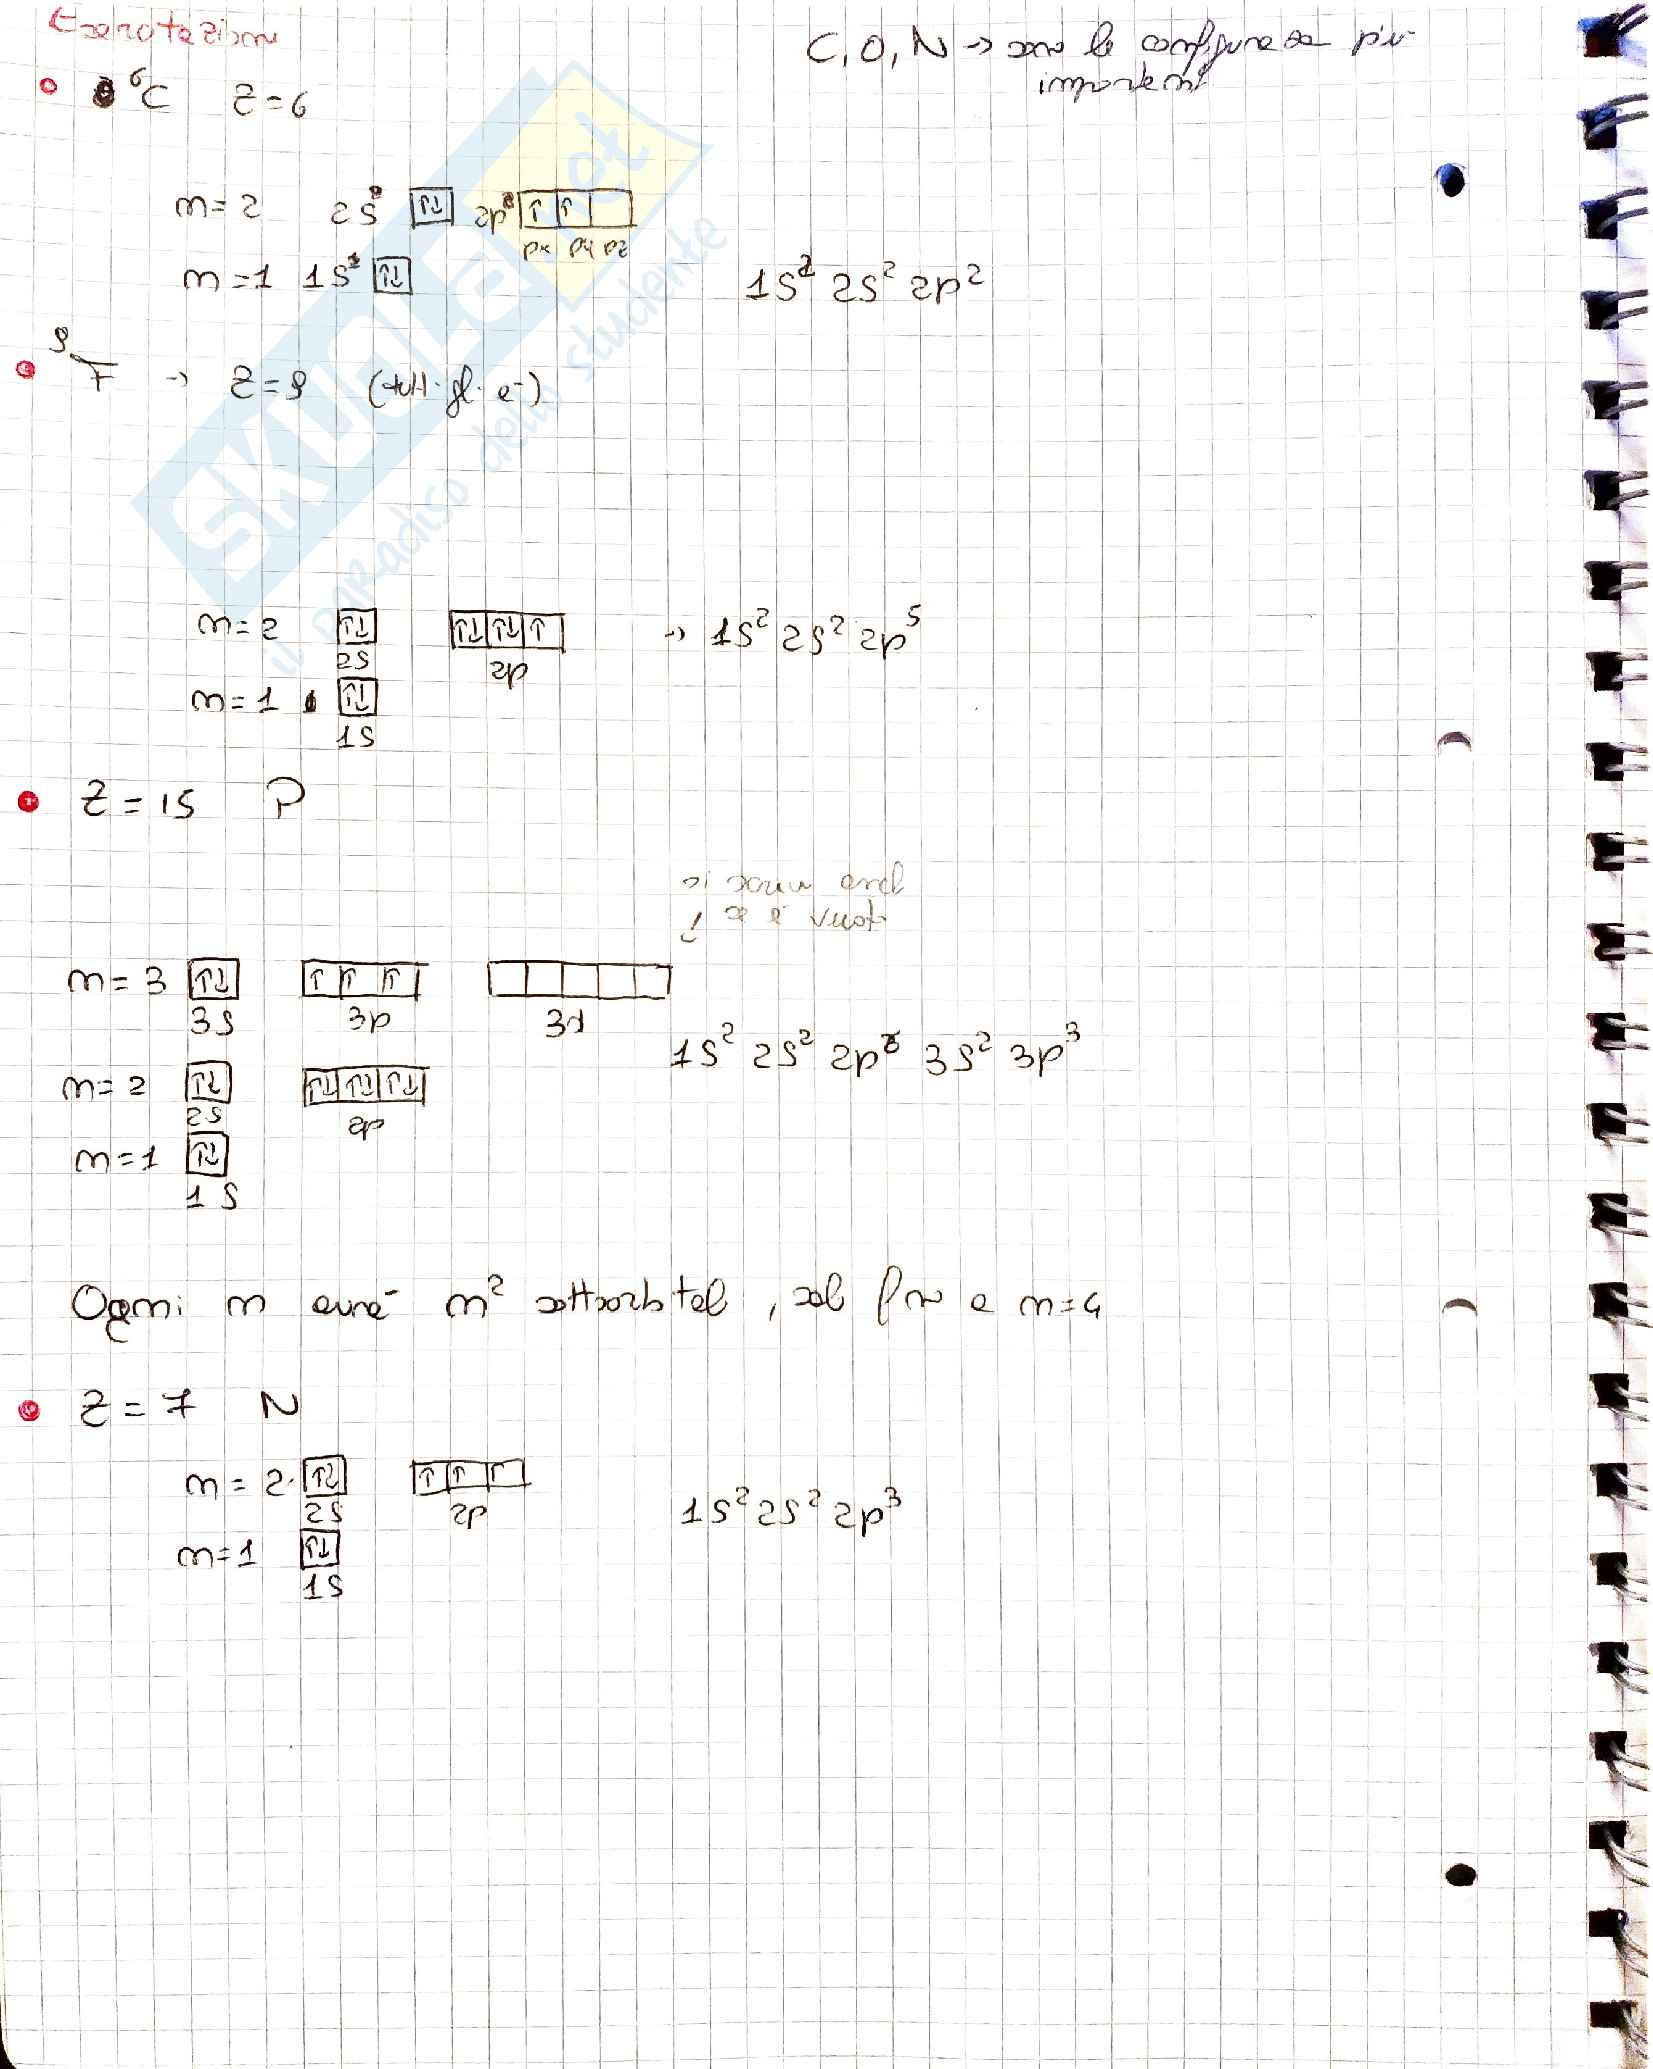 Esercitazioni
C, O, N → sono le configuraz più
importanti
⁶C Z=6
n=2 2s ↑↓ 2p ↑ ↑
px py pz
n=1 1s ↑↓
1s² 2s² 2p²
⁹F → Z=9 (tutti gli e-)
n=2 ↑↓ ↑↓ ↑↓ ↑ → 1s² 2s² 2p⁵
2s 2p
n=1 ↑↓
1s
Z=15 P
si scrive anche
se è vuoto
n=3 ↑↓ ↑ ↑ ↑
3s 3p 3d
1s² 2s² 2p⁶ 3s² 3p³
n=2 ↑↓ ↑↓ ↑↓ ↑↓
2s 2p
n=1 ↑↓
1s
Ogni n avrà n² sottorbitali, solo fino a n=4
Z=7 N
n=2 ↑↓ ↑ ↑ ↑
2s 2p
1s² 2s² 2p³
n=1 ↑↓
1s
SKUOLA.net
il paradiso dello studente